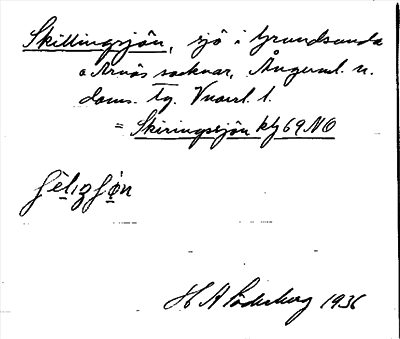 Skillingsjön, sjö i Grundsunda
o Arnäs socknar, Ångerml. n.
doms. tg. Vuorl. 1.
= Skiringssjön kbl 69 NO
H A Söderberg 1936